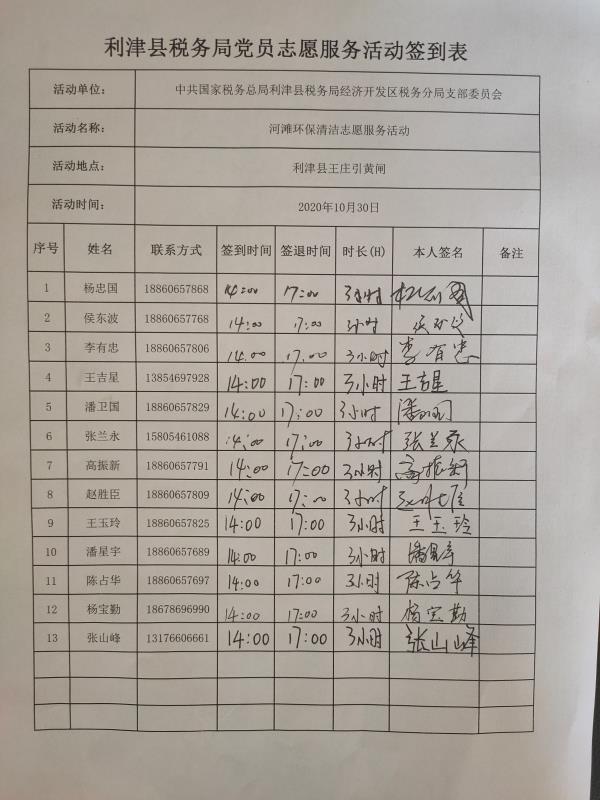 利津县税务局党员志愿服务活动签到表
活动单位： 中共国家税务总局利津县税务局经济开发区税务分局支部委员会
活动名称： 河滩环保清洁志愿服务活动
活动地点： 利津县王庄引黄闸
活动时间： 2020年10月30日
序号 姓名 联系方式 签到时间 签退时间 时长(H) 本人签名 备注
1 杨忠国 18860657868 14:00 17:00 3小时 杨忠国
2 侯东波 18860657768 14:00 17:00 3小时 侯东波
3 李有忠 18860657806 14:00 17:00 3小时 李有忠
4 王吉星 13854697928 14:00 17:00 3小时 王吉星
5 潘卫国 18860657829 14:00 17:00 3小时 潘卫国
6 张兰永 15805461088 14:00 17:00 3小时 张兰永
7 高振新 18860657791 14:00 17:00 3小时 高振新
8 赵胜臣 18860657809 14:00 17:00 3小时 赵胜臣
9 王玉玲 18860657825 14:00 17:00 3小时 王玉玲
10 潘星宇 18860657689 14:00 17:00 3小时 潘星宇
11 陈占华 18860657697 14:00 17:00 3小时 陈占华
12 杨宝勤 18678696990 14:00 17:00 3小时 杨宝勤
13 张山峰 13176606661 14:00 17:00 3小时 张山峰